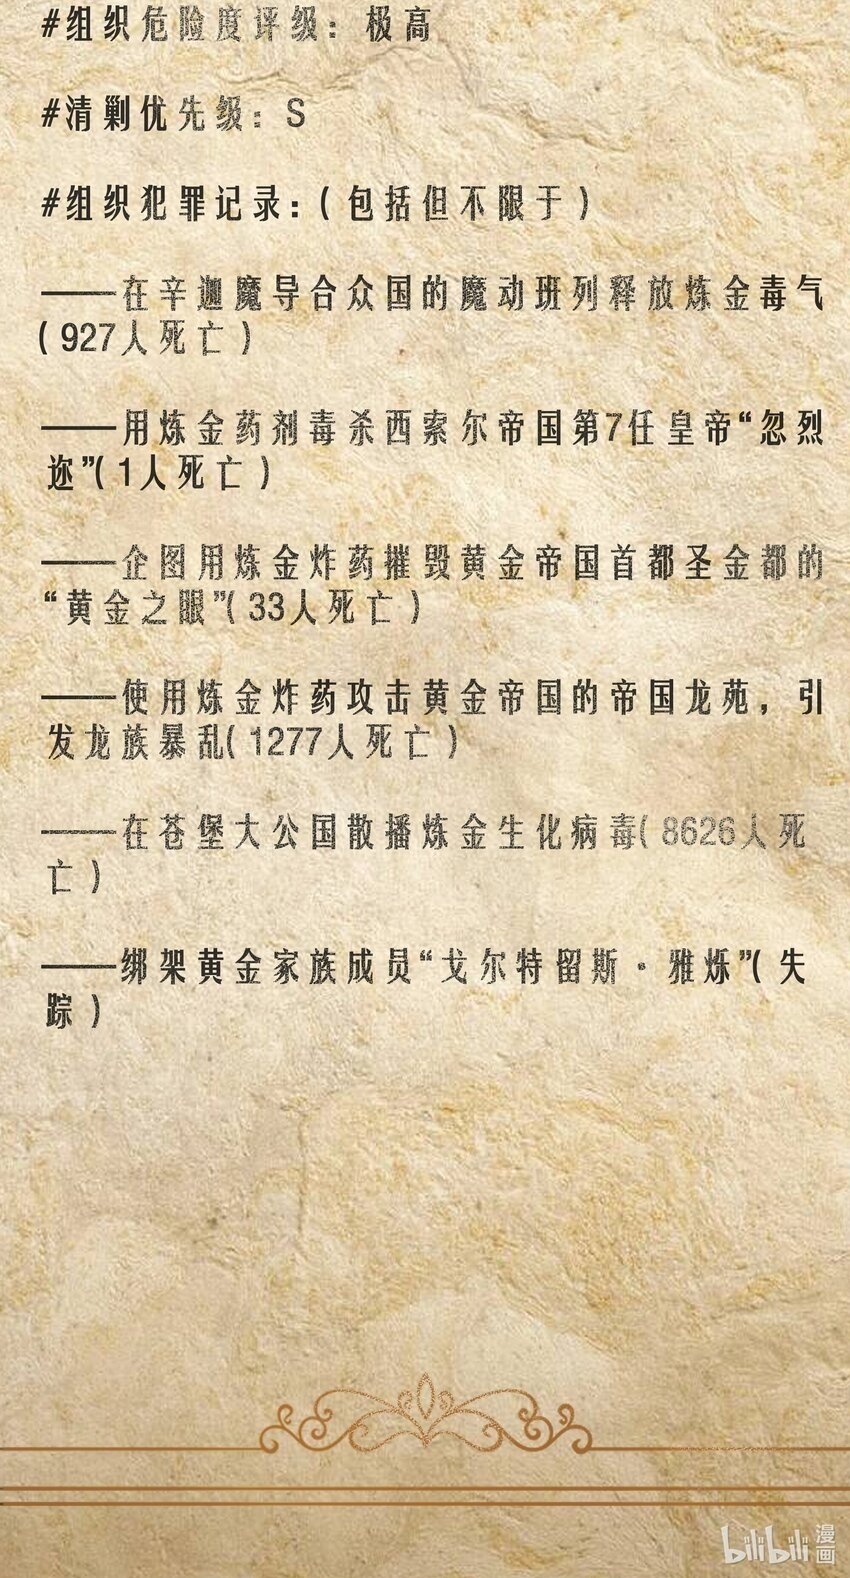 #组织危险度评级：极高
#清剿优先级：S
#组织犯罪记录：（包括但不限于）
——在辛迦魔导合众国的魔动班列释放炼金毒气
（927人死亡）
——用炼金药剂毒杀西索尔帝国第7任皇帝“忽烈
迩”（1人死亡）
——企图用炼金炸药摧毁黄金帝国首都圣金都的
“黄金之眼”（33人死亡）
——使用炼金炸药攻击黄金帝国的帝国龙苑，引
发龙族暴乱（1277人死亡）
——在苍堡大公国散播炼金生化病毒（8626人死
亡）
——绑架黄金家族成员“戈尔特留斯·雅烁”（失
踪）
bilibili漫画